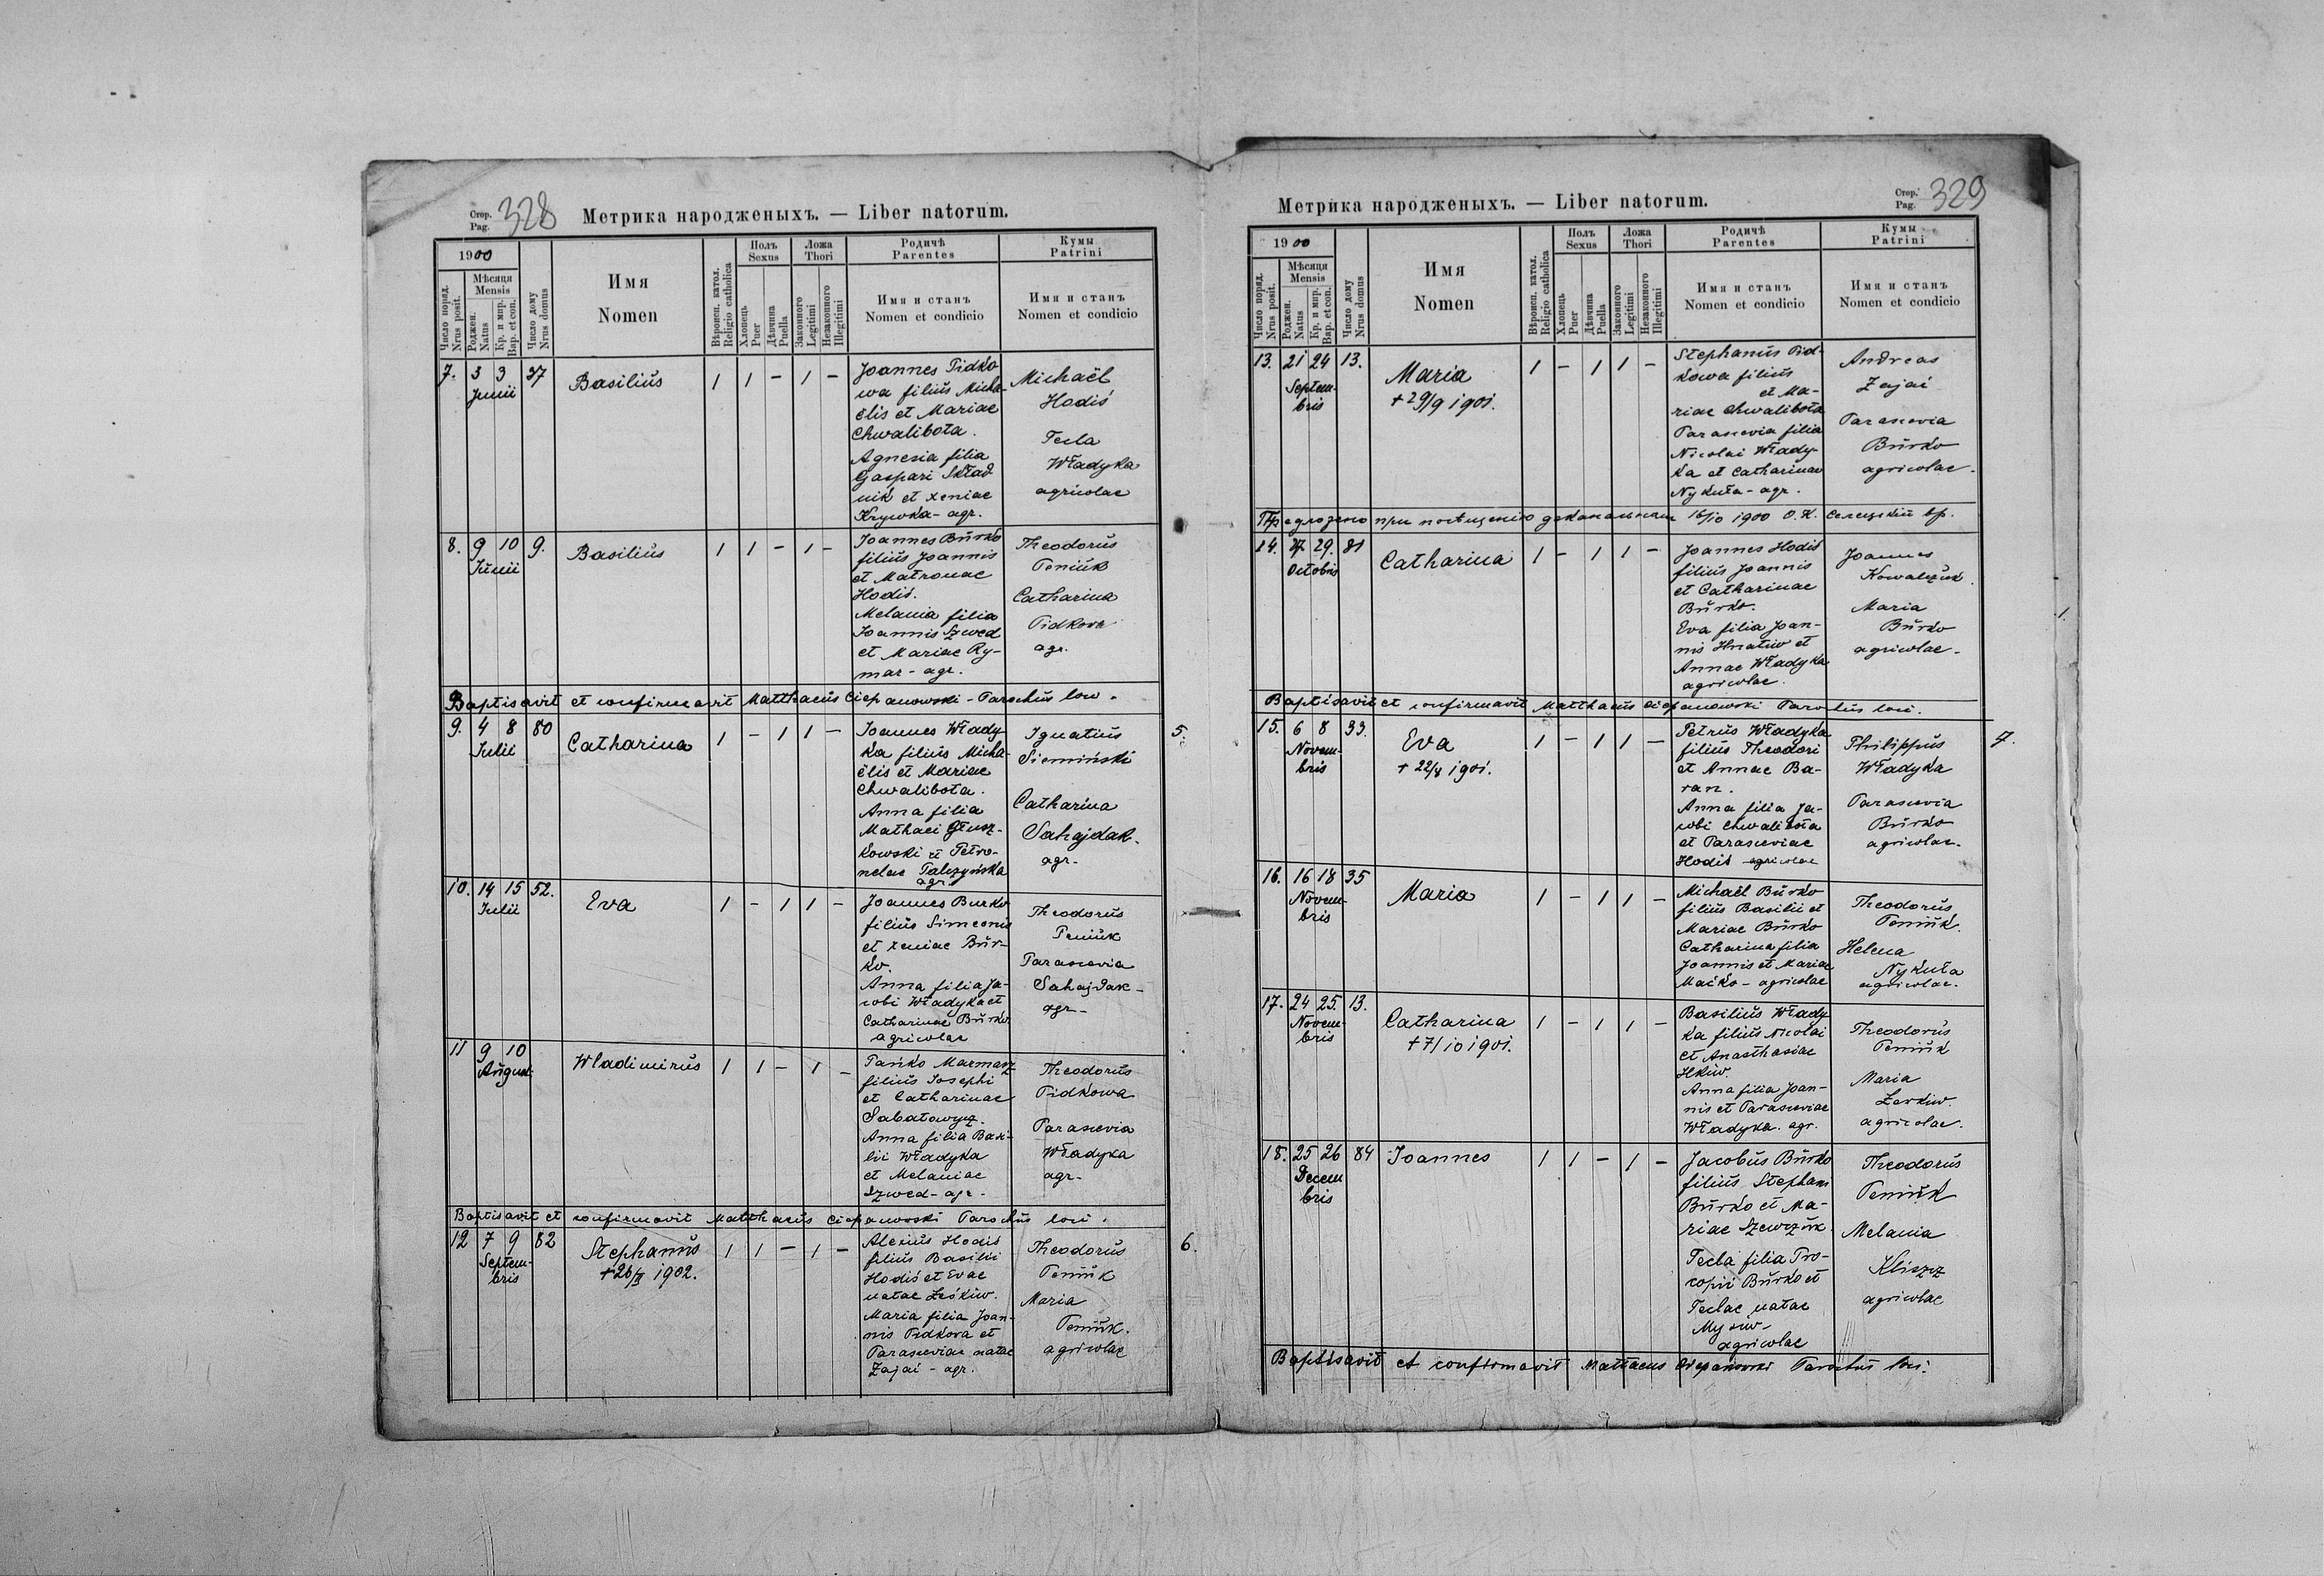 Стор.
Pag. 328
Метрика народженыхъ. — Liber natorum.
1900
Число поряд.
Nrus posit.
Мѣсяця
Mensis
Роджен.
Natus
Кр. и мпр.
Bap. et con.
Число дому
Nrus domus
Имя
Nomen
Вѣроисп. катол.
Religio catholica
Полъ
Sexus
Хлопець
Puer
Дѣвчина
Puella
Ложа
Thori
Законного
Legitimi
Незаконного
Illegitimi
Родичѣ
Parentes
Имя и станъ
Nomen et condicio
Кумы
Patrini
Имя и станъ
Nomen et condicio
7. 3 3 37
Junii
Basilius
1 1 – 1 –
Joannes Pidko
wa filius Micha-
ëlis et Mariae
Chwalibota.
Agnesia filia
Gaspari Skład
nik et Xeniae
Krywka - agr.
Michaël
Hodiś
Tecla
Władyka
agricolae
8. 9 10 9.
Junii
Basilius
1 1 – 1 –
Joannes Burko
filius Joannis
et Matronae
Hodiś.
Melania filia
Joannis Szwed
et Mariae Ry-
mar - agr.
Theodorus
Peniuk
Catharina
Pidkowa
agr.
Baptisavit et confirmavit Matthaeus Ciepanowski - Parochus loci.
9. 4 8 80
Julii
Catharina
1 – 1 1 –
Joannes Włady
ka filius Micha-
ëlis et Mariae
Chwalibota.
Anna filia
Mathaei Głusz-
kowski et Petro-
nelae Talczyńska
agr.
Ignatius
Siemiński
Catharina
Sahajdak.
agr.
5.
10. 14 15 52.
Julii
Eva
1 – 1 1 –
Joannes Burko
filius Simeonis
et Xeniae Bur-
ko.
Anna filia Ja-
cobi Władyka et
Catharinae Burko
agricolae
Theodorus
Peniuk
Parascevia
Sahajdak -
agr.
11 9 10
August.
Wladimirus
1 1 – 1 –
Pańko Marmasz
filius Josephi
et Catharinae
Sabatowycz.
Anna filia Basi-
lii Władyka
et Melaniae
Szwed - agr.
Theodorus
Pidkowa
Parascevia
Władyka
agr.
Baptisavit et confirmavit Matthaeus Ciepanowski Parochus loci.
12 7 9 82
Septem-
bris
Stephanus
+ 26/II 1902.
1 1 – 1 –
Alexius Hodiś
filius Basilii
Hodiś et Evae
natae Leśkiw.
Maria filia Joan-
nis Pidkova et
Parasceviae natae
Zajać - agr.
Theodorus
Peniuk
Maria
Peniuk.
agricolae
6.
Метрика народженыхъ. — Liber natorum.
Стор.
Pag. 329
1900
Число поряд.
Nrus posit.
Мѣсяця
Mensis
Роджен.
Natus
Кр. и мпр.
Bap. et con.
Число дому
Nrus domus
Имя
Nomen
Вѣроисп. катол.
Religio catholica
Полъ
Sexus
Хлопець
Puer
Дѣвчина
Puella
Ложа
Thori
Законного
Legitimi
Незаконного
Illegitimi
Родичѣ
Parentes
Имя и станъ
Nomen et condicio
Кумы
Patrini
Имя и станъ
Nomen et condicio
13. 21 24 13.
Septem-
bris
Maria
+ 29/9 1901.
1 – 1 1 –
Stephanus Pid-
kowa filius
et Ma-
riae Chwalibota
Parascevia filia
Nicolai Włady-
ka et Catharinae
Nykuła - agr.
Andreas
Zajać
Parascevia
Burko
agricolae.
Предложено при посѣщенію деканальнам 16/10 1900 О. К. Селецкій вр.
14. 27 29. 81
Octobris
Catharina
1 – 1 1 –
Joannes Hodiś
filius Joannis
et Catharinae
Burko.
Eva filia Joan-
nis Hnatiw et
Annae Władyka
agricolae.
Joannes
Kowalczuk.
Maria
Burko
agricolae.
Baptisavit et confirmavit Matthaeus Ciepanowski Parochus loci.
15. 6 8 33.
Novem-
bris
Eva
+ 22/8 1901.
1 – 1 1 –
Petrus Władyka
filius Theodori
et Annae Ba-
ran.
Anna filia Ja-
cobi Chwalibota
et Parasceviae
Hodiś agricolae
Philippus
Władyka
Parascevia
Burko
agricolae.
7.
16. 16 18 35
Novem-
bris
Maria
1 – 1 1 –
Michaël Burko
filius Basilii et
Mariae Burko
Catharina filia
Joannis et Mariae
Maćko - agricolae
Theodorus
Peniuk.
Helena
Nykuła
agricolae.
17. 24 25. 13.
Novem-
bris
Catharina
+ 7/10 1901.
1 – 1 1 –
Basilius Włady
ka filius Nicolai
et Anasthasiae
Ilkiw.
Anna filia Joan-
nis et Parasceviae
Władyka. agr.
Theodorus
Peniuk
Maria
Leskiw.
agricolae.
18. 25 26 84
Decem
bris
Joannes
1 1 – 1 –
Jacobus Burko
filius Stephani
Burko et Ma-
riae Szewczuk
Tecla filia Pro-
copii Burko et
Teclae natae
Mysiw -
agricolae
Theodorus
Peniuk
Melania
Kliszcz
agricolae
Baptisavit et confirmavit Mattaeus Ciepanowski Parochus loci.